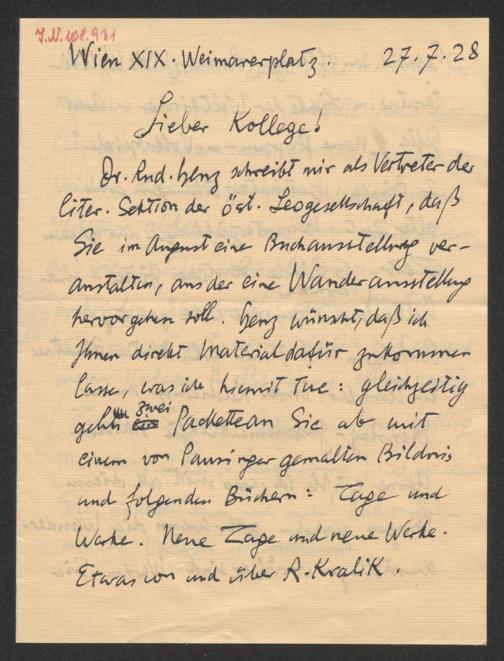 J.N. 108.931
Wien XIX. Weimarerplatz. 27.7.28
Lieber Kollege!
Dr. Rud. Henz schreibt mir als Vertreter der
liter. Sektion der Öst. Leogesellschaft, daß
Sie im August eine Buchausstellung ver-
anstalten, aus der eine Wanderausstellung
hervorgehen soll. Henz wünscht, daß ich
Ihnen direkt Material dafür zukommen
lasse, was ich hiemit tue: gleichzeitig
gehen zwei Packette an Sie ab mit
einem von Pausinger gemalten Bildnis
und folgenden Büchern: Tage und
Werke. Neue Tage und neue Werke.
Etwas von und über R. Kralik.